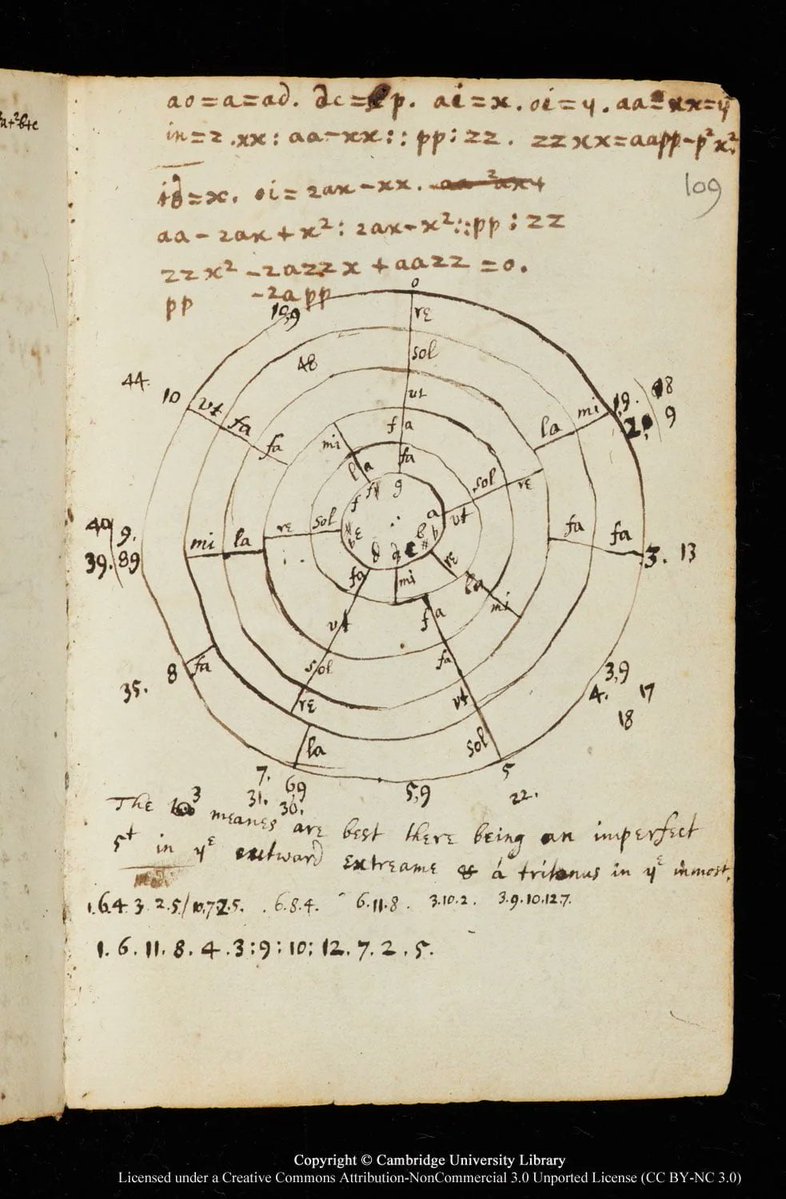 ao=a=ad. dc= p. ai=x. oi=y. aa-xx=y
in=z. xx: aa-xx:: pp: zz. zzxx=aapp-p²x².
109
id=x. oi=2ax-xx.
aa-2ax+x²: 2ax-x²::pp: zz
zzx² -2azzx +aazz =0.
pp -2app
0
10,9
re
48
sol
44.
10
ut
mi
19.
18
9
ut
fa
fa
fa
la
mi
fa
la
sol
re
g
a
ut
40
9.
39.
89
mi
la
re
sol
fa
fa
3.
13
fa
mi
re
la
mi
ut
fa
35.
8
fa
sol
fa
3,9
4.
17
18
re
ut
la
sol
7.
69
31.
30.
5,9
5
22.
The 3 meanes are best there being an imperfect
5t in ye outward extreame & a tritonus in ye inmost.
1.6.4.3.2.5/10.7.2.5. .6.8.4. 6.11.8. 3.10.2. 3.9.10.12.7.
1.6.11.8.4.3:9:10:12.7.2.5.
Copyright © Cambridge University Library
Licensed under a Creative Commons Attribution-NonCommercial 3.0 Unported License (CC BY-NC 3.0)